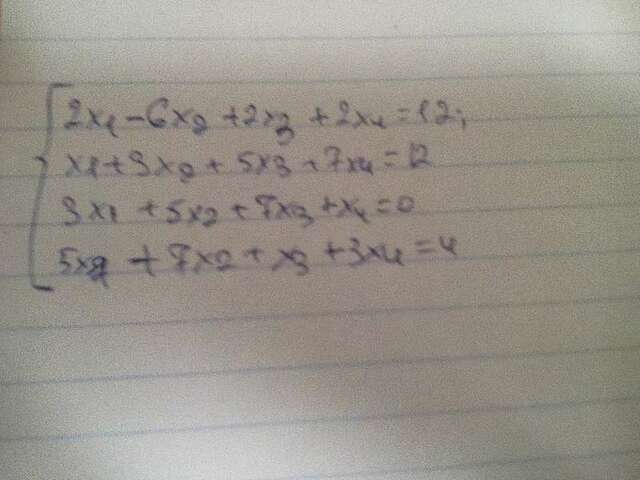 2x₁ - 6x₂ + 2x₃ + 2x₄ = 12;
x₁ + 3x₂ + 5x₃ + 7x₄ = 12
3x₁ + 5x₂ + 7x₃ + x₄ = 0
5x₁ + 7x₂ + x₃ + 3x₄ = 4